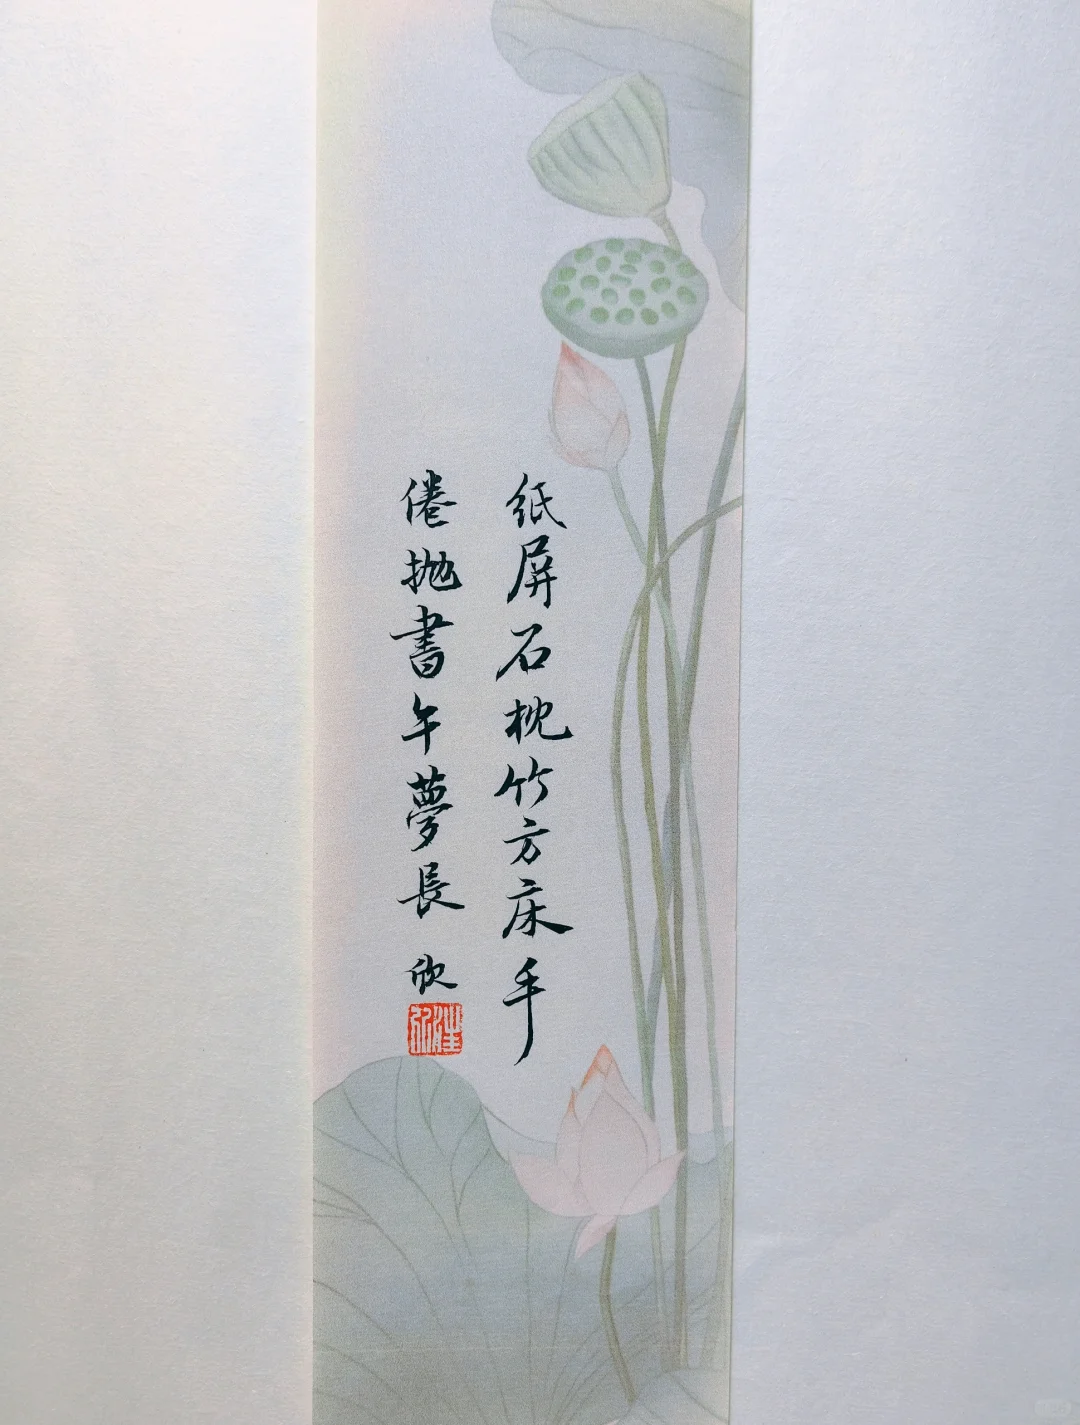 纸屏石枕竹方床手
倦抛書午夢長 欣